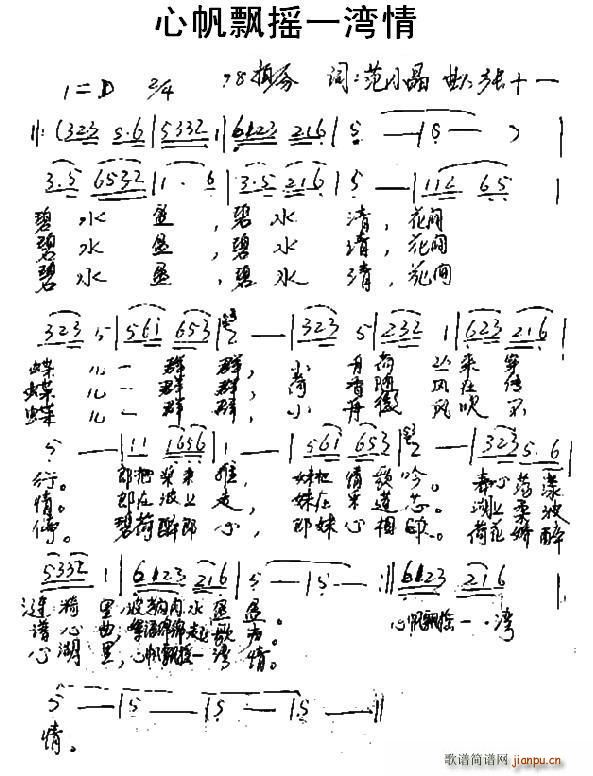 心帆飘摇一湾情
1=D 2/4 词:范月晶 曲:张十一
‖:(323 5.6|5332 1|6123 216|5 —|5 — )|
3.5 6532|1. 6|3.5 216|5 —|116 65|
碧水盈,碧水清,花间
碧水盈,碧水清,花间
碧水盈,碧水清,花间
323 5|561 653|2 —|323 5|232 1|623 216|
蝶儿一群群,小舟荷丛来穿
蝶儿一群群,荷香随风在传
蝶儿一群群,小舟微风吹不
5 —|11 1656|1 —|561 653|2 —|323 5.6|
行。郎把采来推,妹把情歌吟。春心荡漾
情。郎在波上走,妹在采莲芯。湖上柔波
停。碧荷醉郎心,郎妹心相映。荷花娇醉
5332 1|6123 216|5 —|5 —:‖6123 216|
涟漪里,
谱心曲,
心湖里,心帆飘摇一湾情。
心帆飘摇一湾
5 —|5 —|5 —|5 —‖
情。
歌谱简谱网 jianpu.cn